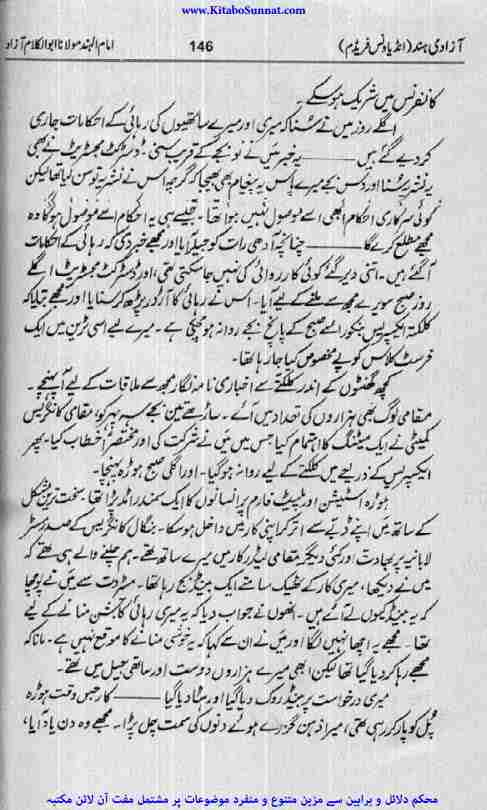 www.KitaboSunnat.com
آزادی ہند (انڈیا ونس فریڈم) 146 امام الہند مولانا ابوالکلام آزاد
کانفرنس میں شریک ہو سکے۔
اگلے روز میں نے سُنا کہ میری اور میرے ساتھیوں کی رہائی کے احکامات جاری
کر دیے گئے ہیں ——— یہ خبر میں نے نو بجے کے قریب سنی۔ ڈسٹرکٹ مجسٹریٹ نے بھی
یہ نشریہ سُنا اور دس بجے میرے پاس یہ پیغام بھی بھیجا کہ گرچہ اس نے نشریہ تو سن لیا تھا لیکن
کوئی سرکاری احکام ابھی اسے موصول نہیں ہوا تھا۔ جیسے ہی یہ احکام اسے موصول ہوگا وہ
مجھے مطلع کرے گا ——— چنانچہ آدھی رات کو جیلر آیا اور مجھے خبر دی کہ رہائی کے احکامات
آ گئے ہیں۔ اتنی دیر گئے کوئی کارروائی کی نہیں جا سکتی تھی، اور ڈسٹرکٹ مجسٹریٹ اگلے
روز صبح سویرے مجھ سے ملنے کے لیے آیا۔ اس نے رہائی کا آرڈر پڑھ کر سنایا اور مجھے بتایا کہ
کلکتہ ایکسپریس بنکورا سے صبح کے پانچ بجے روانہ ہو چکی ہے۔ میرے لیے اسی ٹرین میں ایک
فرسٹ کلاس کوپے مخصوص کیا جا رہا تھا۔
کچھ گھنٹوں کے اندر کلکتے سے اخباری نامہ نگار مجھ سے ملاقات کے لیے آ پہنچے۔
مقامی لوگ بھی ہزاروں کی تعداد میں آئے۔ ساڑھے تین بجے سہ پہر کو، مقامی کانگریس
کمیٹی نے ایک میٹنگ کا اہتمام کیا جس میں میں نے شرکت کی اور مختصراً خطاب کیا۔ پھر
ایکسپریس کے ذریعے میں کلکتے کے لیے روانہ ہو گیا۔ اور اگلی صبح ہوڑہ پہنچا۔
ہوڑہ اسٹیشن اور پلیٹ فارم پر انسانوں کا ایک سمندر امڈ پڑا تھا۔ سخت ترین مشکل
کے ساتھ میں اپنے ڈبے سے اتر کر اپنی کار میں داخل ہو سکا۔ بنگال کانگریس کے صدر مسٹر
لابانیہ پربھا دت اور کئی دیگر مقامی لیڈر کار میں میرے ساتھ تھے۔ ہم چلنے والے ہی تھے کہ
میں نے دیکھا، میری کار کے ٹھیک سامنے ایک بینڈ بج رہا تھا۔ مسز دت سے میں نے پوچھا
کہ یہ بینڈ کیوں لے آئے ہیں۔ انھوں نے جواب دیا کہ یہ میری رہائی کا جشن منانے کے لیے
تھا۔ مجھے یہ اچھا نہیں لگا اور میں نے ان سے کہا کہ یہ خوشی منانے کا موقع نہیں ہے۔ مانا کہ
مجھے رہا کر دیا گیا تھا لیکن ابھی میرے ہزاروں دوست اور ساتھی جیل میں تھے۔
میری درخواست پر بینڈ روک دیا گیا اور ہٹا دیا گیا ——— کار جس وقت ہوڑہ
پُل کو پار کر رہی تھی، میرا ذہن گزرے ہوئے دنوں کی سمت چل پڑا۔ مجھے وہ دن یاد آیا،
محکم دلائل و براہین سے مزین متنوع و منفرد موضوعات پر مشتمل مفت آن لائن مکتبہ